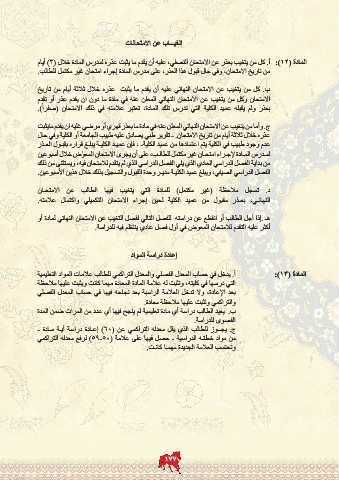 الغياب عن الامتحانات
المادة (١٢): أ. كل من يتغيب بعذر عن الامتحان النصفي، عليه أن يقدم ما يثبت عذره لمدرس المادة خلال (٣) أيام
من تاريخ الامتحان، وفي حال قبول هذا العذر، على مدرس المادة إجراء امتحان غير مكتمل للطالب.
ب. كل من يتغيب عن الامتحان النهائي عليه أن يقدم ما يثبت عذره خلال ثلاثة أيام من تاريخ
الامتحان وكل من يتغيب عن الامتحان النهائي المعلن عنه في مادة ما دون ان يقدم عذر أو تقدم
بعذر ولم يقبله عميد الكلية التي تدرس تلك المادة، تعتبر علامته في ذلك الامتحان (صفراً).
ج. وأما من يتغيب عن الامتحان النهائي المعلن عنه في مادة ما بعذر قهري أو مرضي عليه ان يقدم مايثبت
عذره خلال ثلاثة أيام من تاريخ الامتحان - تقرير طبي يصادق عليه طبيب الجامعة أو الكلية وفي حال
عدم وجود طبيب في الكلية يتم اعتمادها من عميد الكلية. ، فإن عميد الكلية يبلغ قراره بقبول العذر
لمدرس المادة لإجراء امتحان غير مكتمل للطالب، على أن يجري الامتحان المعوض خلال أسبوعين
من بداية الفصل الدراسي العادي الذي يلي الفصل الدراسي الذي لم يتقدم للامتحان فيه، ويستثنى من ذلك
الفصل الدراسي الصيفي، ويبلغ عميد الكلية مدير وحدة القبول والتسجيل بذلك خلال هذين الأسبوعين.
د. تسجل ملاحظة (غير مكتمل) للمادة التي يتغيب فيها الطالب عن الامتحان
النهائي، بعذر مقبول من عميد الكلية لحين إجراء الامتحان التكميلي واكتمال علامته.
هـ. إذا أجل الطالب أو انقطع عن دراسته للفصل التالي لفصل التغيب عن الامتحان النهائي لمادة أو
أكثر عليه التقدم للامتحان المعوض في أول فصل عادي ينتظم فيه للدراسة.
إعادة دراسة المواد
المادة (١٣): أ. يدخل في حساب المعدل الفصلي والمعدل التراكمي للطالب علامات المواد التعليمية
التي درسها في كليته، وتثبت له علامة المادة المعادة مهما كانت ويثبت عليها ملاحظة
بعد الإعادة، ولا تدخل العلامة الراسبة بعد نجاحه فيها في حساب المعدل الفصلي
والتراكمي وتثبت عليها ملاحظة معادة.
ب. يعيد الطالب دراسة أي مادة تعليمية لم ينجح فيها أي عدد من المرات ضمن المدة
القصوى للدراسة.
ج. يجوز للطالب الذي يقل معدله التراكمي عن (٦٠) إعادة دراسة أية مادة -
من مواد خطته الدراسية - حصل فيها على علامة (٥٠-٥٩) لرفع معدله التراكمي
وتحتسب العلامة الجديدة مهما كانت.
١٧٧